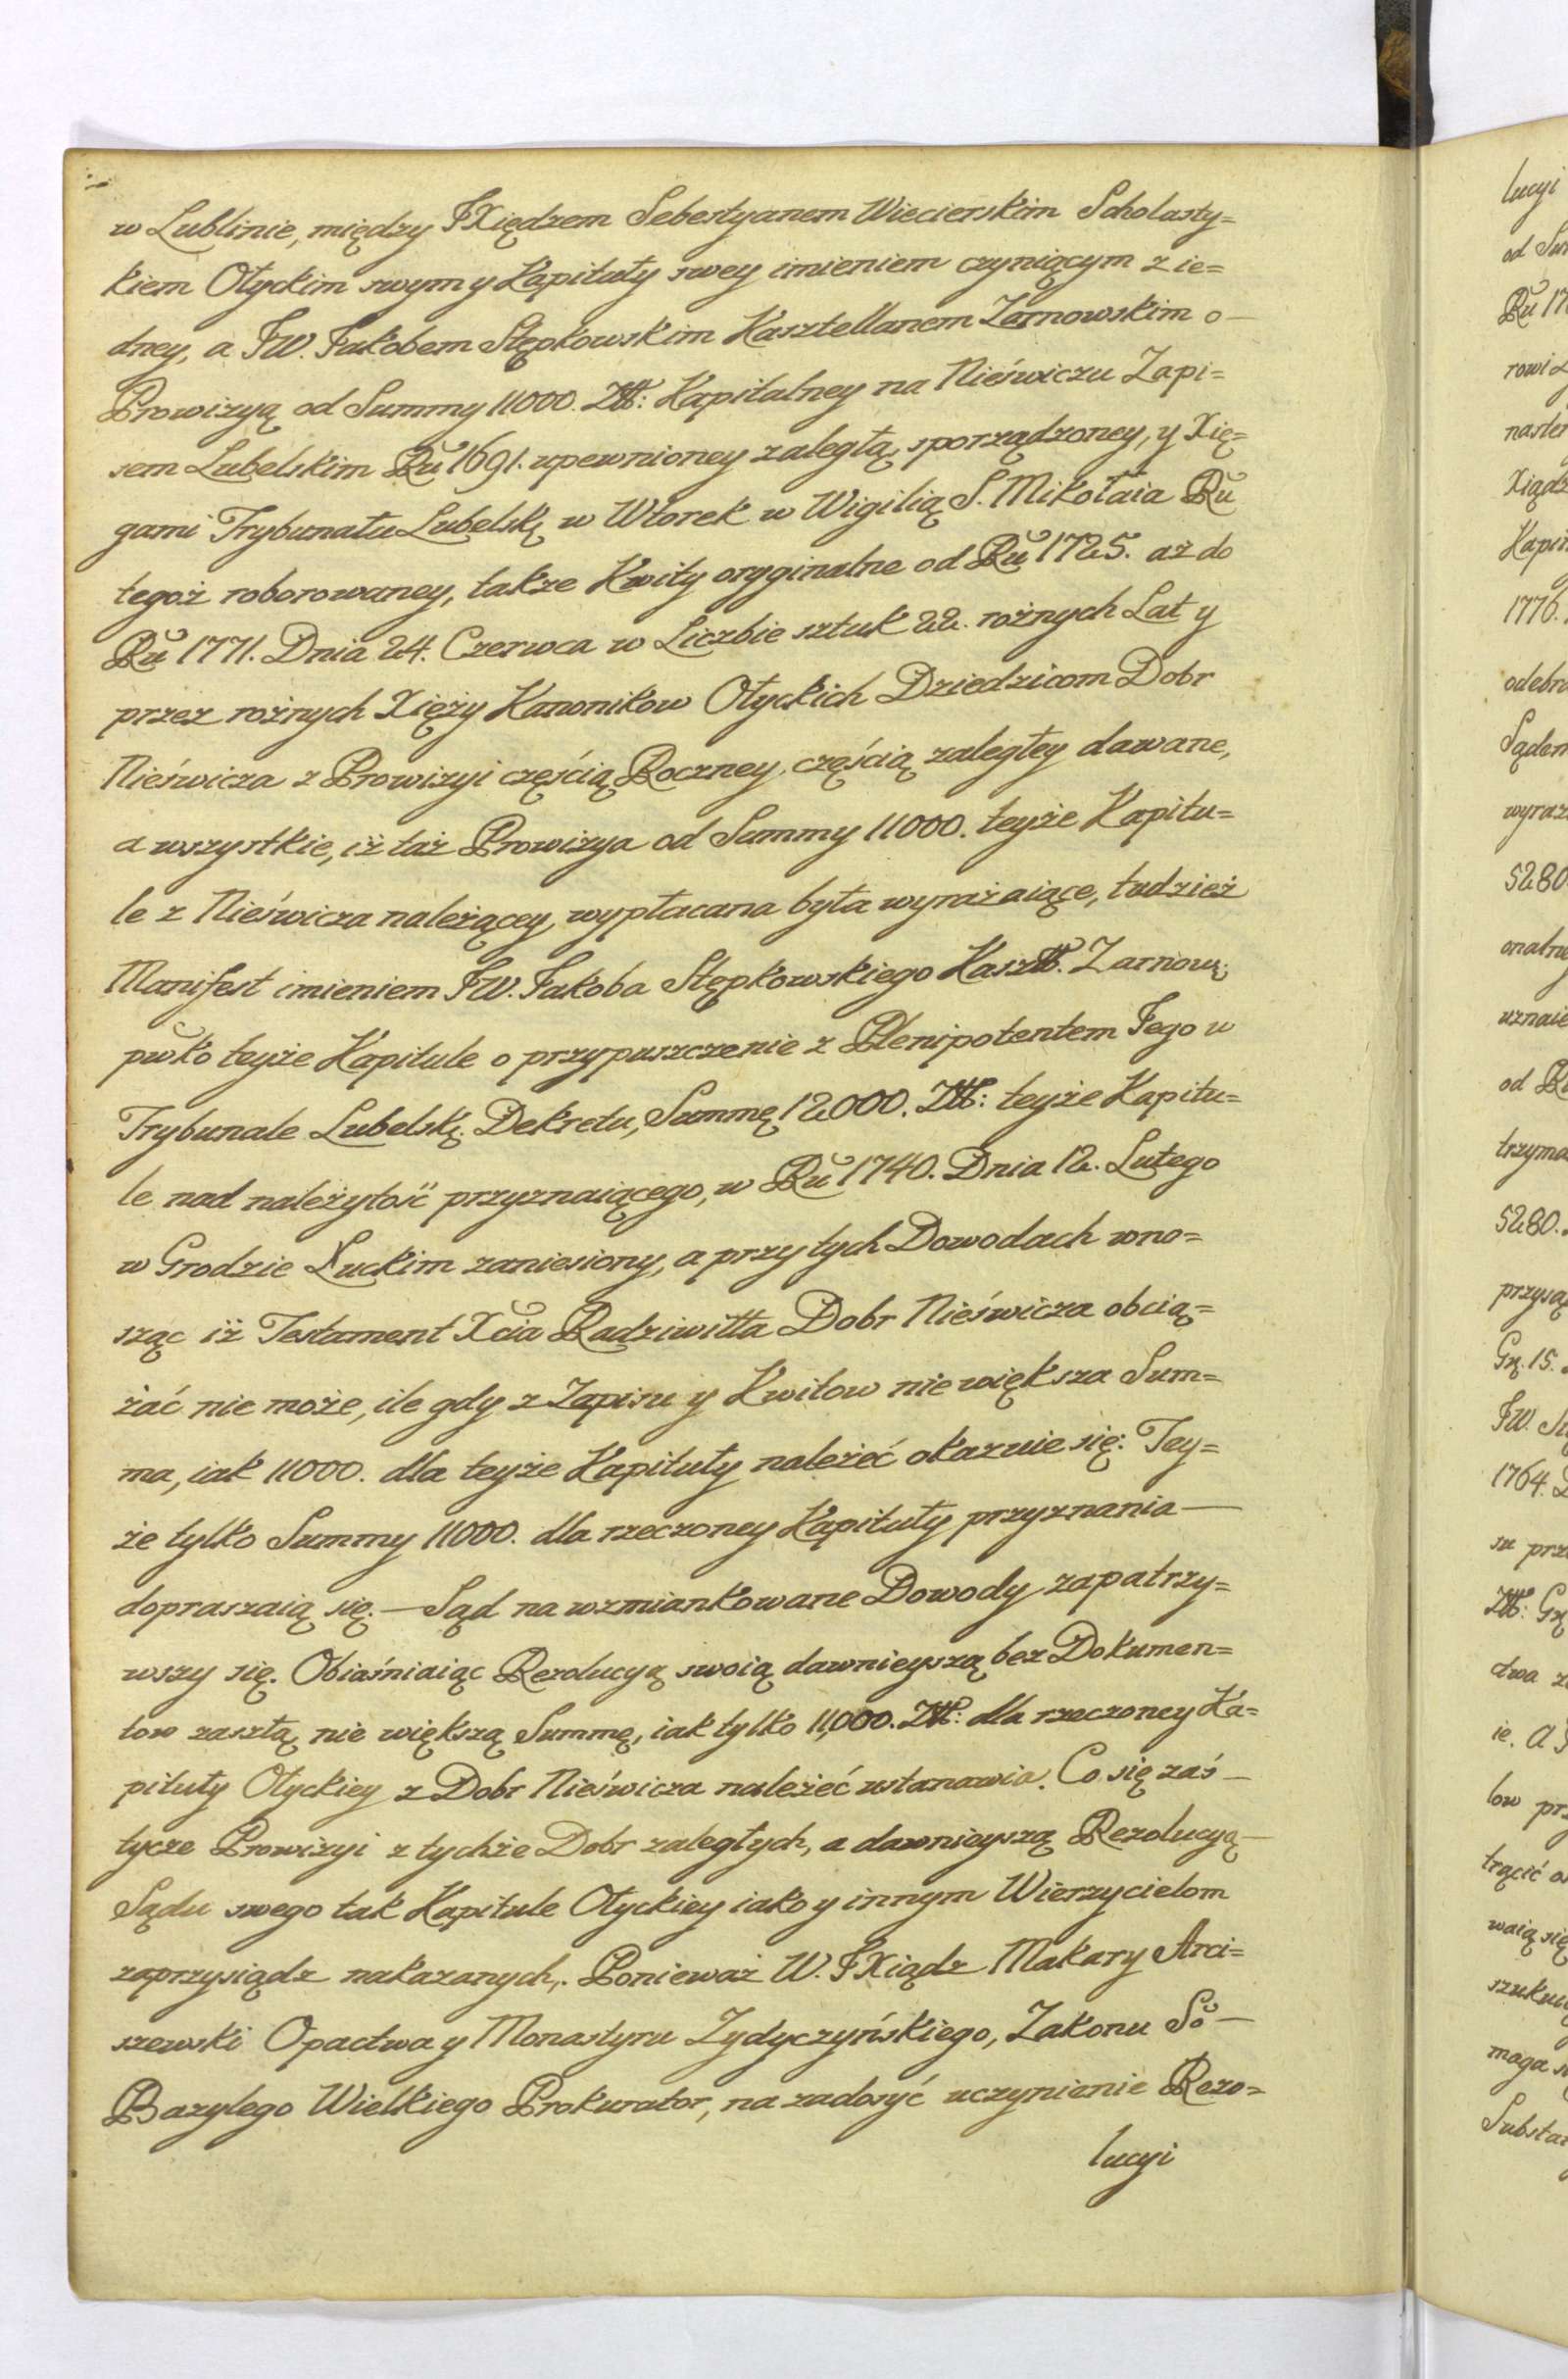 w Lublinie, między JXiędzem Sebestyanem Wiecierskim Scholasty=
kiem Ołyckim swym y Kapituły swey imieniem czyniącym z ie=
dney, a JW. Jakobem Stępkowskim Kasztellanem Zarnowskim o —
Prowizyą od Summy 11000. Złł: Kapitalney na Nieświczu Zapi=
sem Lubelskim Ru 1691. upewnioney zaległą, sporządzoney, y Xię=
gami Trybunału Lubelsk: w Wtorek w Wigilią S. Mikołaia Ru
tegoż roborowaney, także Kwity oryginalne od Ru 1725. aż do
Ru 1771. Dnia 24. Czerwca w Liczbie sztuk 22. rożnych Lat y
przez rożnych Xięży Kanonikow Ołyckich Dziedzicom Dobr
Nieświcza z Prowizyi częścią Roczney, częścią zaległey dawane,
a wszystkie, iż taż Prowizya od Summy 11000. teyże Kapitu=
le z Nieświcza należącey, wypłacana była wyrażaiące, tudzież
Manifest imieniem JW. Jakoba Stępkowskiego Kasztt. Zarnow:
pwko teyże Kapitule o przypuszczenie z Plenipotentem Jego w
Trybunale Lubelsk: Dekretu, Summę 12000. Złł: teyże Kapitu=
le nad należytość przyznaiącego, w Ru 1740. Dnia 12. Lutego
w Grodzie Łuckim zaniesiony, a przy tych Dowodach wno=
sząc iż Testament Xcia Radziwiłła Dobr Nieświcza obcią=
żać nie może, ile gdy z Zapisu y Kwitow nie większa Sum=
ma, iak 11000. dla teyże Kapituły należeć okazuie się: Tey=
że tylko Summy 11000. dla rzeczoney Kapituły przyznania —
dopraszaią się. — Sąd na wzmiankowane Dowody zapatrzy=
wszy się. Obiaśniaiąc Rezolucyą swoią dawnieyszą bez Dokumen=
tow zaszłą, nie większą Summę, iak tylko 11,000. Złł: dla rzeczoney Ka=
pituły Ołyckiey z Dobr Nieświcza należeć ustanawia. Co się zaś —
tycze Prowizyi z tychże Dobr zaległych, a dawnieyszą Rezolucyą —
Sądu swego tak Kapitule Ołyckiey iako y innym Wierzycielom
zaprzysiądz nakazanych, Ponieważ W. JXiądz Makary Arci=
szewski Opactwa y Monastyru Zydyczyńskiego, Zakonu So —
Bazylego Wielkiego Prokurator, na zadosyć uczynienie Rezo=
lucyi
lucyi
od Su
Ru 17
rowi
Xiądz
Kapi
1776.
odebra
Sądem
wyraz
5280
onalne
uznaie
od Ru
trzyma
5280.
przysą
Gr. 15.
JW.
1764.
su prz
Złł: Gr
ctwa z
ie. a
low pr
trącić
waią się
szukui
maga
Substa